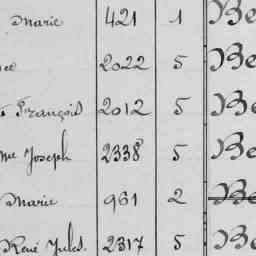 Marie 421 1 Be
2022 5 Be
François 2012 5 Be
Joseph 2338 5 Be
Marie 961 2 Be
René Jules. 2317 5 Be